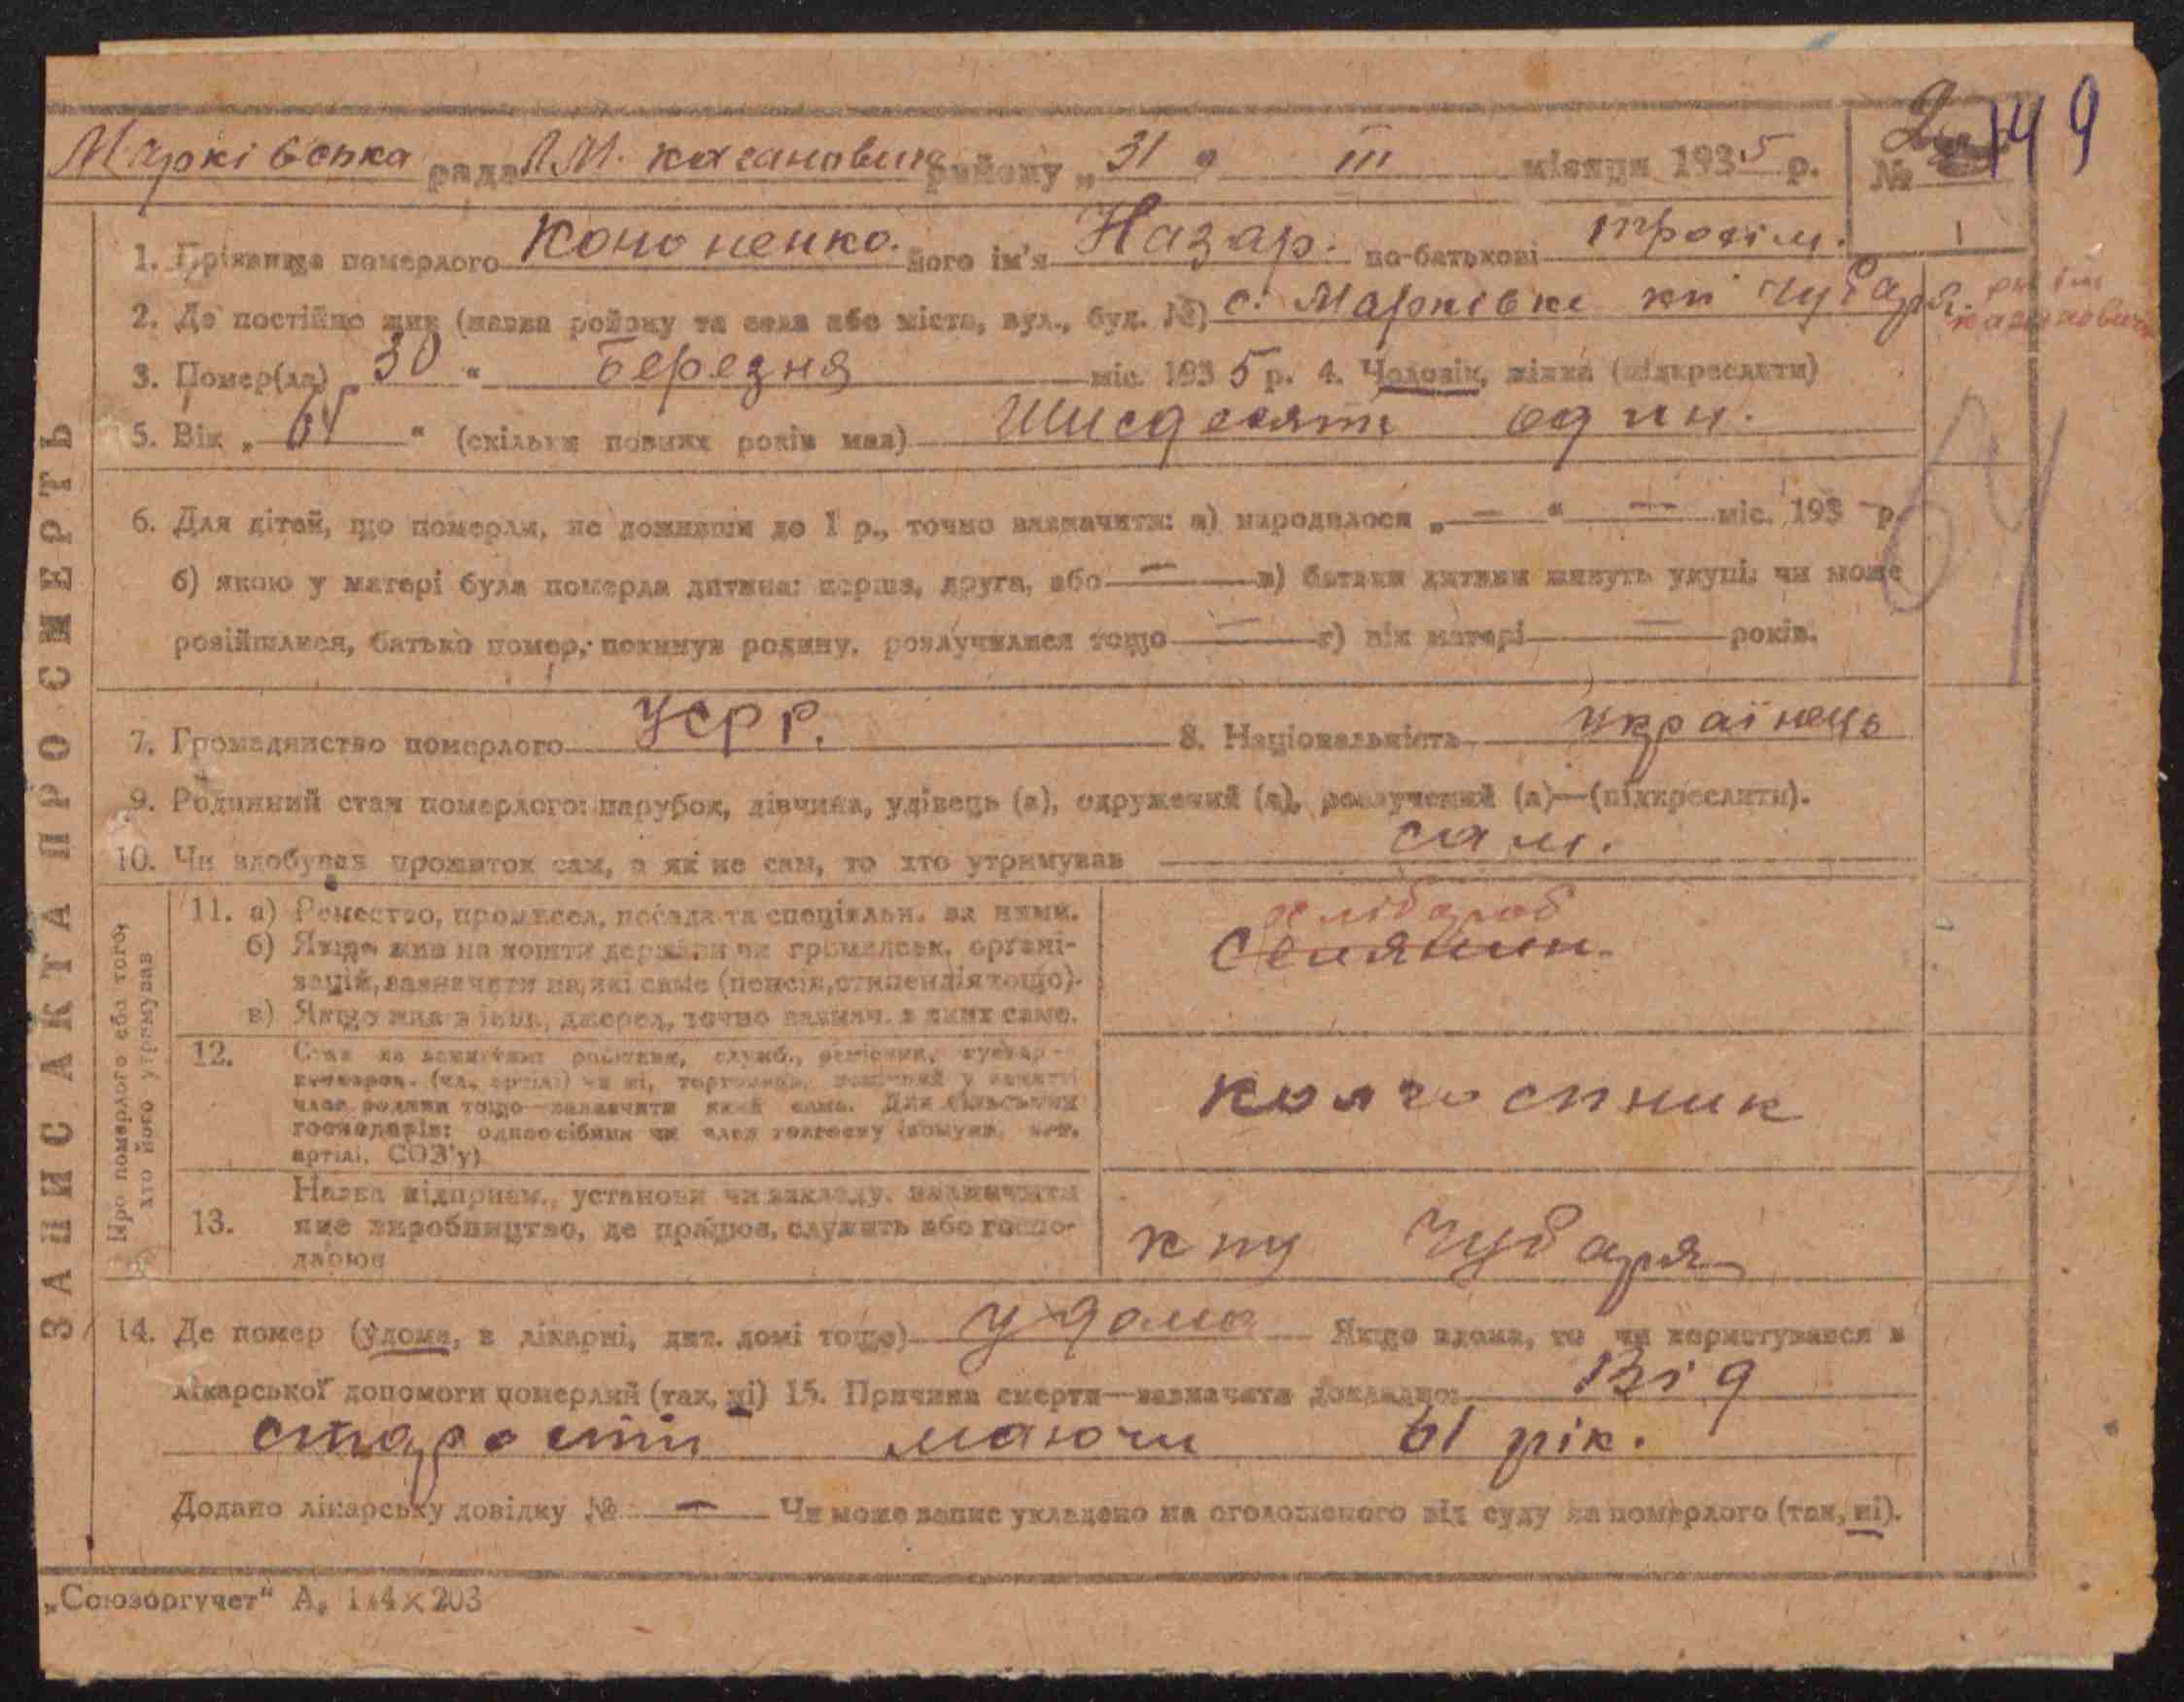 Марківська рада Л.М. Кагановича району „ 31 " III місяця 1935 р. № 149
1. Прізвище померлого Кононенко. його ім'я Назар. по-батькові Трохим.
2. Де постійно жив (назва району та села або міста, вул., буд. №) с. Марківка кп Чубаря. рн ім Кагановича
3. Помер(ла) „ 30 " Березня міс. 1935 р. 4. Чоловік, жінка (підкреслити)
5. Вік „ 61 " (скільки повних років мав) Шисдесят один.
6. Для дітей, що померли, не доживши до 1 р., точно зазначити: а) народилося „ — " — міс. 193 — р.
б) якою у матері була померла дитина: перша, друга, або — в) батьки дитини живуть укупі, чи може
розійшлися, батько помер, покинув родину, розлучилися тощо — г) вік матері — років.
7. Громадянство померлого УСРР. 8. Національність українець
9. Родинний стан померлого: парубок, дівчина, удівець (а), одружений (а), розлучений (а)—(підкреслити).
10. Чи здобував прожиток сам, а як не сам, то хто утримував сам.
ЗАПИС АКТА ПРО СМЕРТЬ
Про померлого або того,
хто його утримував
11. а) Ремество, промисел, посада та спеціяльн. за ними.
хлібороб
б) Якщо жив на кошти держави чи громадськ. органі-
Селянин.
зацій, зазначити на які саме (пенсія, стипендія тощо).
в) Якщо жив з інш. джерел, точно зазнач. з яких саме.
12. Стан за занятям: робітник, служб., ремісник, кустар—
член родини тощо—зазначити який саме. Для сільських
господарів: одноосібник чи член колгоспу (комуни,
артілі, СОЗ'у)
колгоспник
Назва підприєм., установи чи закладу, зазначити
13. яке виробництво, де працює, служить або госпо-
дарює
кпу Чубаря
14. Де помер (удома, в лікарні, дит. домі тощо) удома Якщо вдома, то чи користувався з
лікарської допомоги померлий (так, ні) 15. Причина смерти—зазначити докладно: Від
старости маючи 61 рік.
Додано лікарську довідку № — Чи може запис укладено на оголошеного від суду за померлого (так, ні).
„Союзоргучет" А